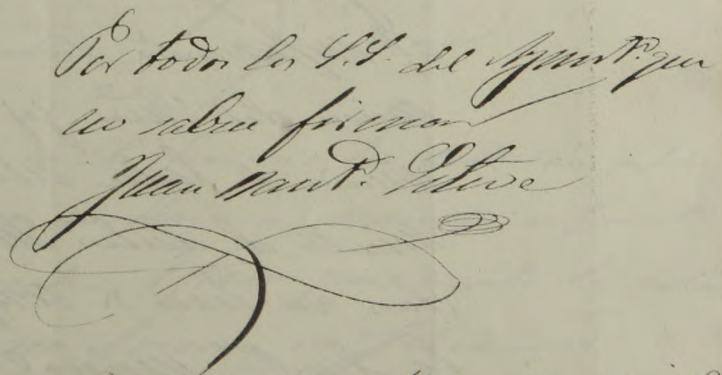 Por todos los S.S. del Ayunt.º que
no saben firmar
Juan Baut.ª Esteve